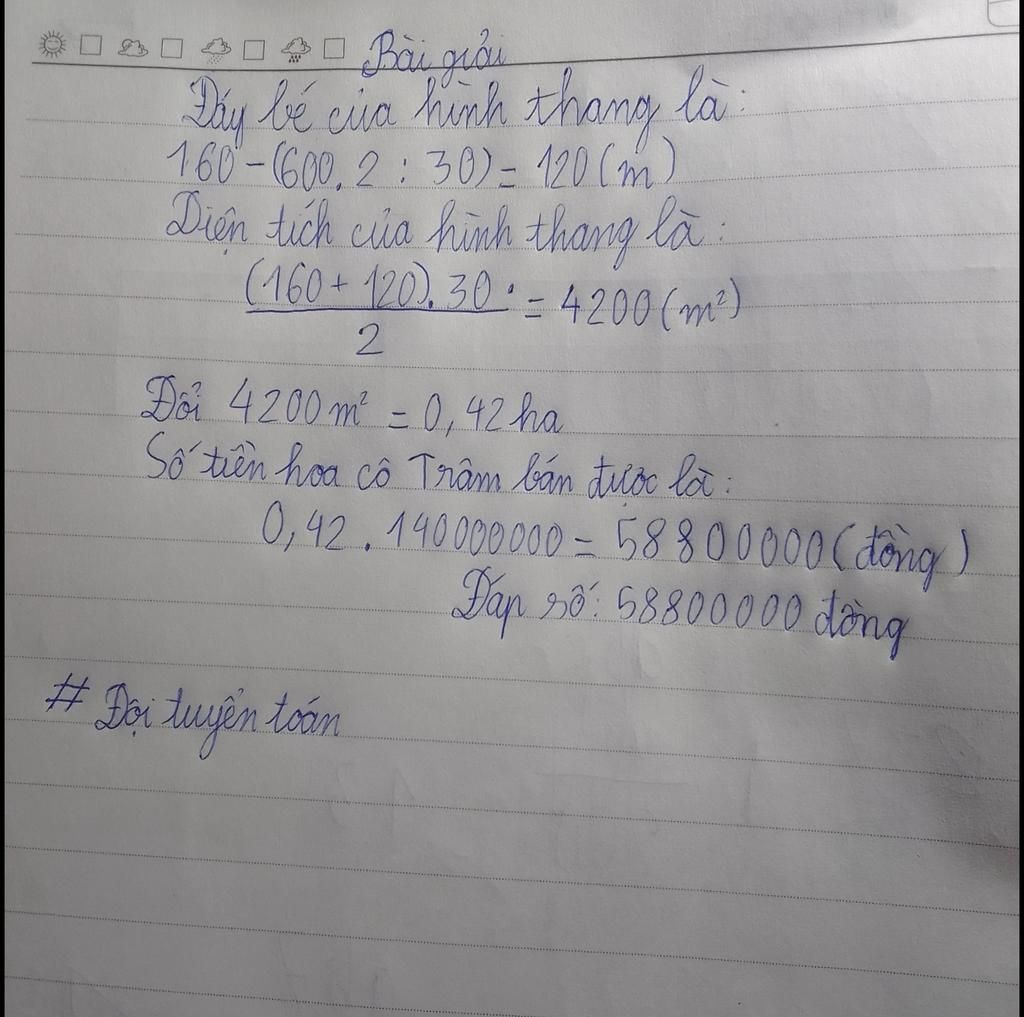 Bài giải
Đáy bé của hình thang là:
160-(600.2:30)=120(m)
Diện tích của hình thang là:
(160+120).30.
2
= 4200(m²)
Đổi 4200m² = 0,42ha
Số tiền hoa cô Trâm bán được là:
0,42.140000000=58800000(đồng)
Đáp số: 58800000 đồng
# Đội tuyển toán